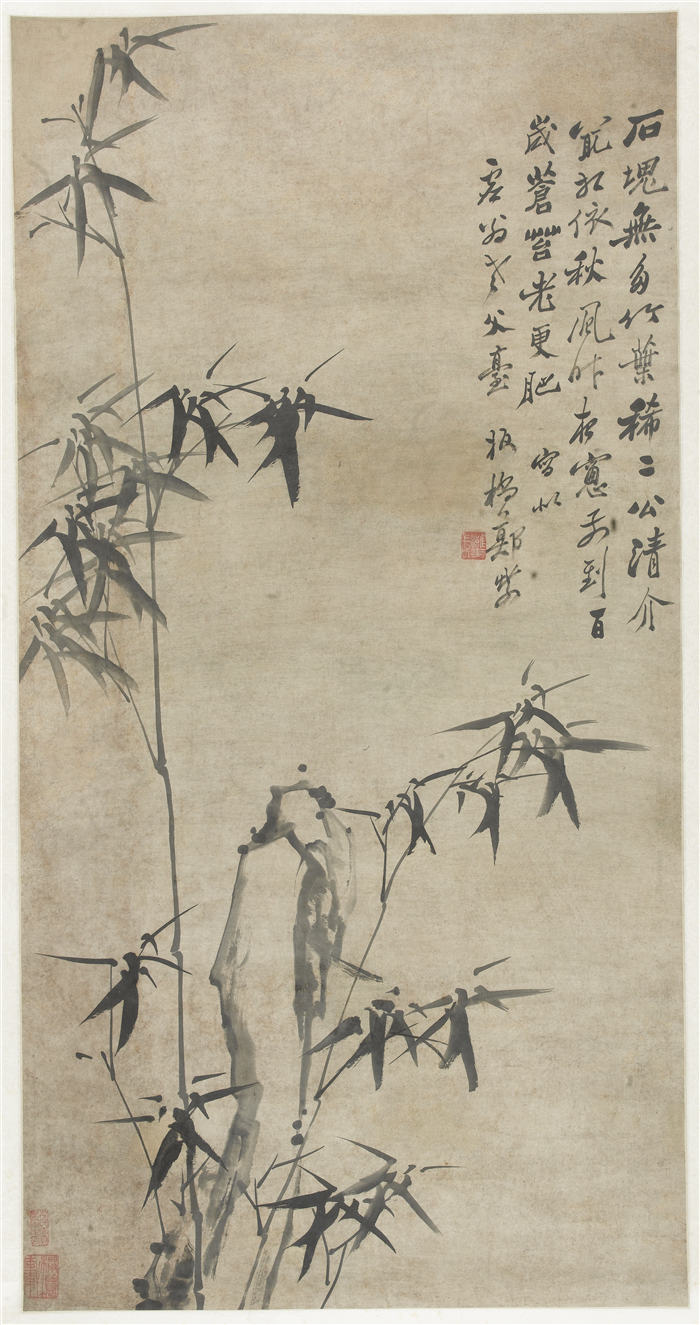 石塊無多竹葉稀二公清介
相依秋風昨夜窻前到百
歲蒼苔老更肥 寫似
翁老父臺 板橋鄭燮